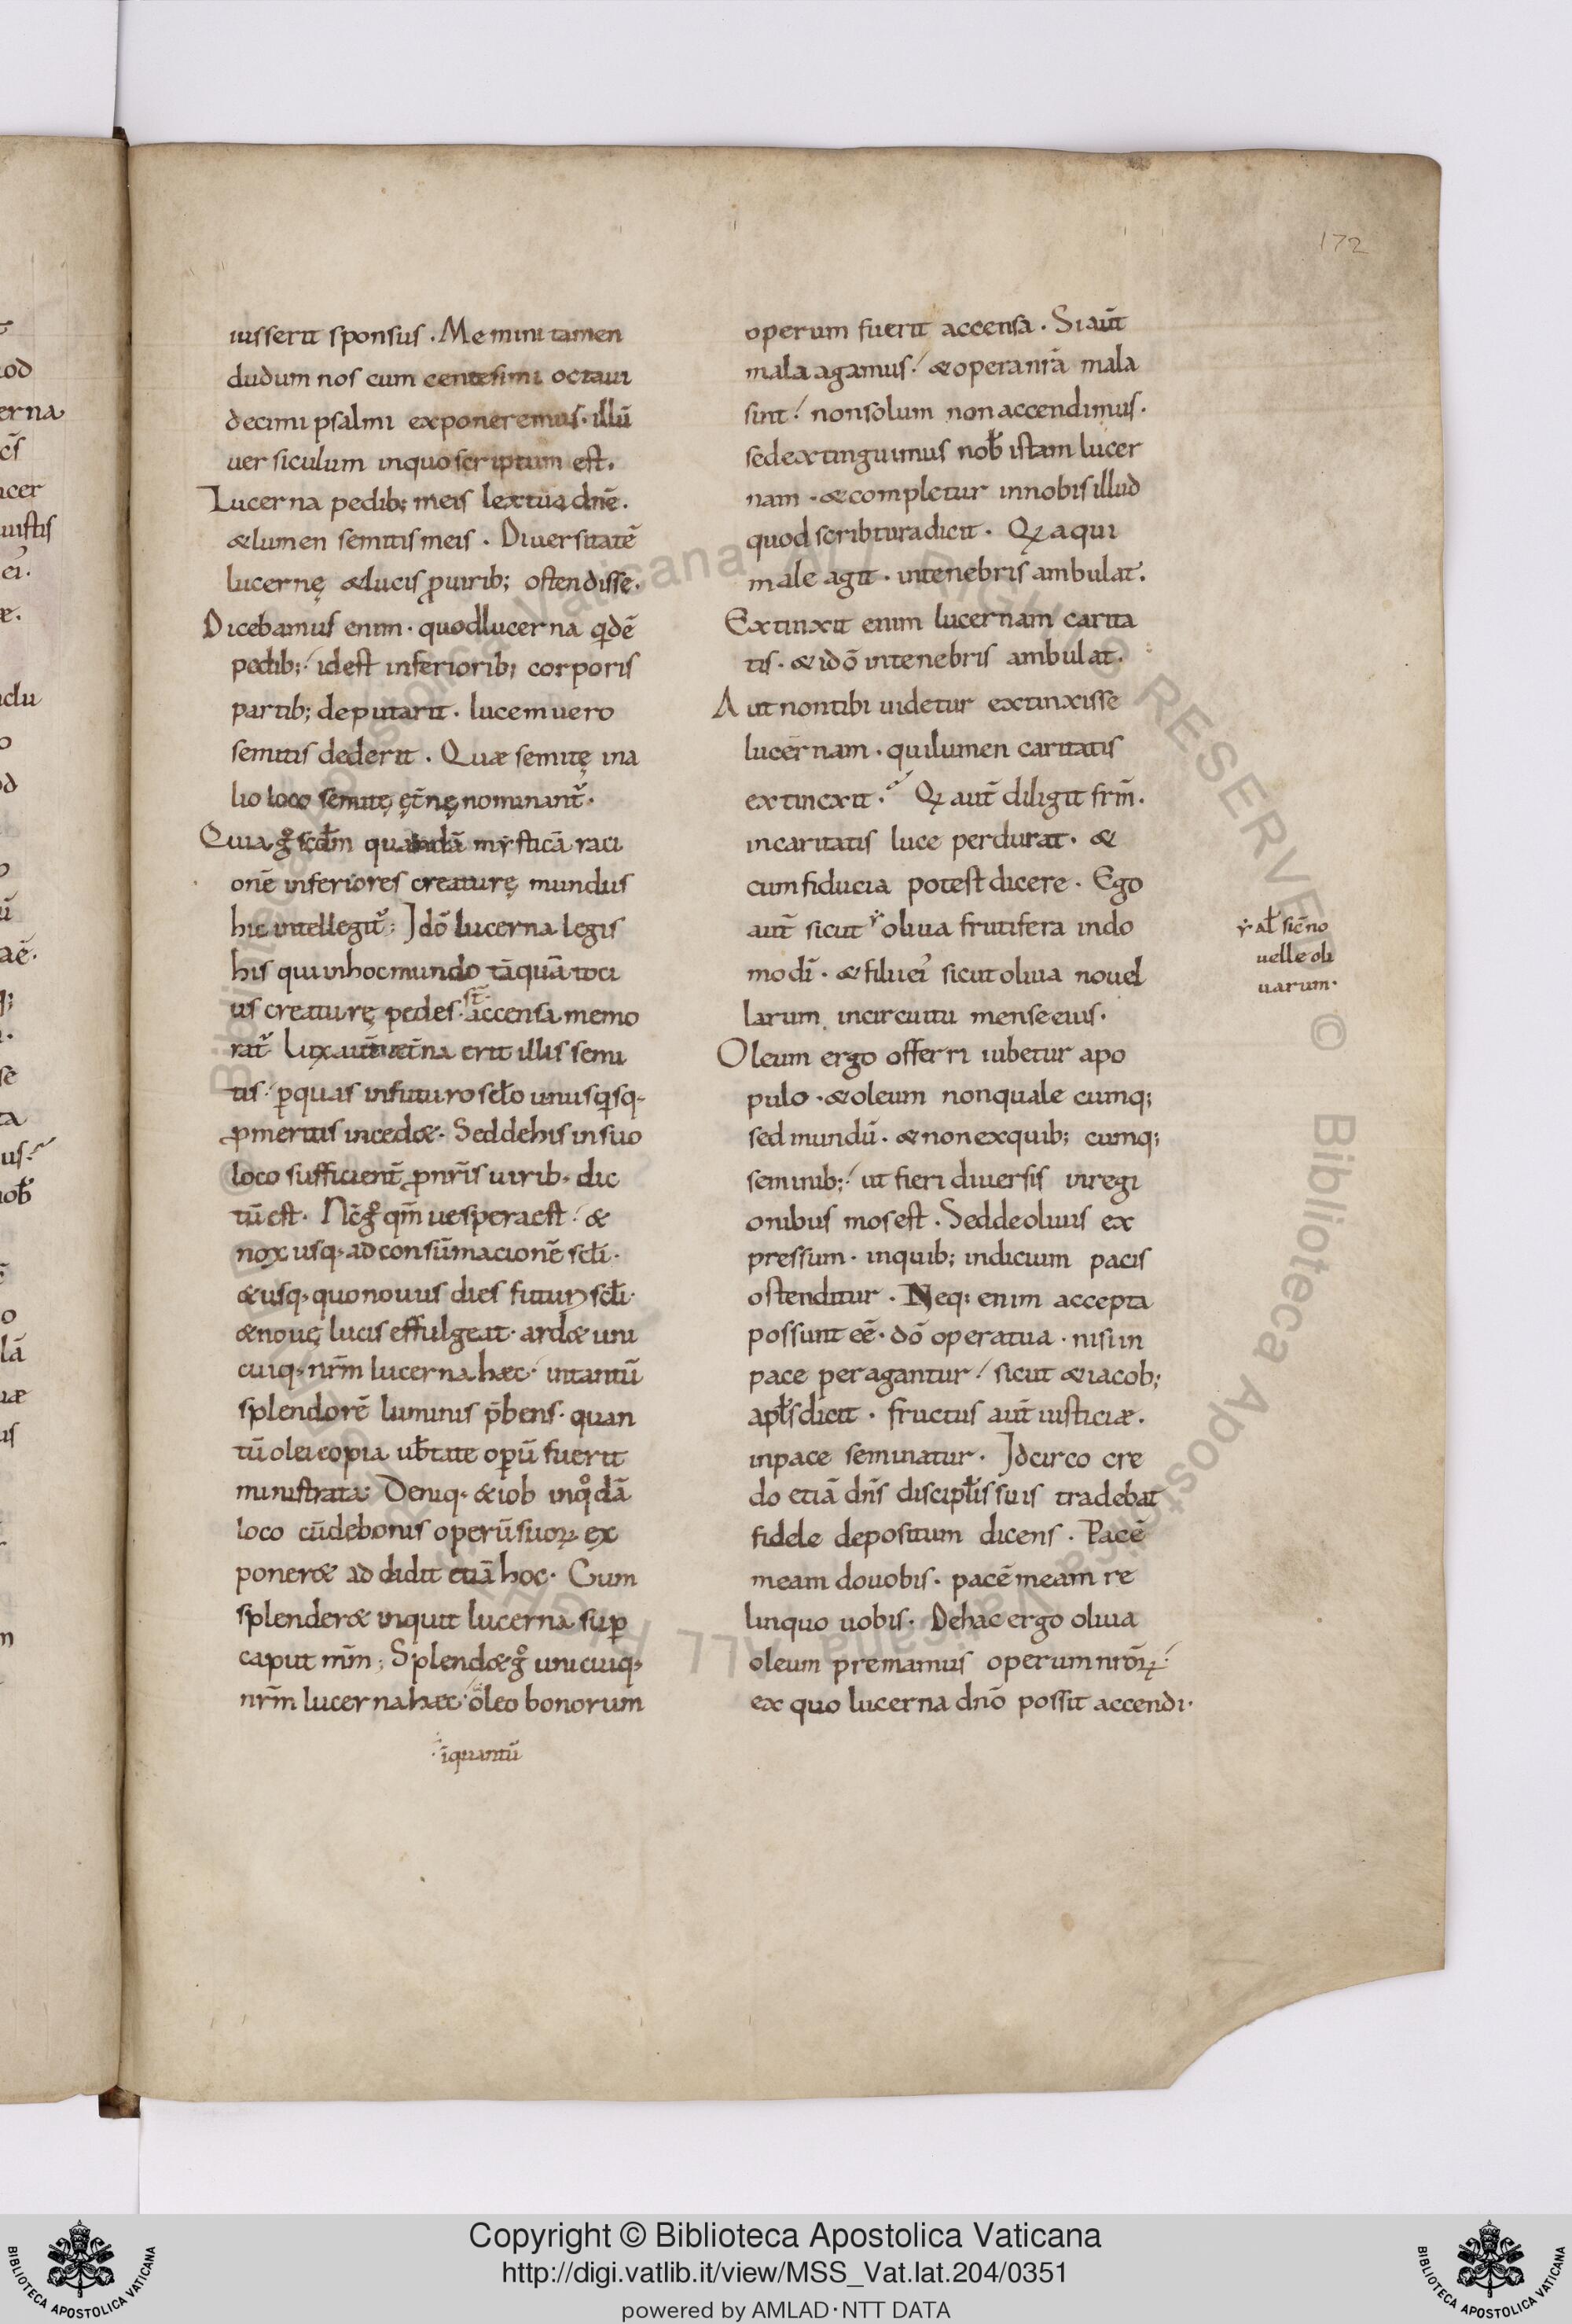 172
iusserit sponsus . Memini tamen
dudum nos cum centesimi octaui
decimi psalmi exponeremus · illū
uersiculum inquo scriptum est.
Lucerna pedib; meis lex tua dnē .
& lumen semitis meis . Diuersitatē
lucernę & lucis ꝓ uirib; ostendisse .
Dicebamus enim · quod lucerna qdē
pedib; idest inferiorib; corporis
partib; deputarit . lucem uero
semitis dederit . Quæ semitę in a
lio loco semitę ęt̄nę nominant̄ .
Quia g̊ scdm quandā mysticā raci
onē inferiores creaturę mundus
hic intellegit̄ ; Idō lucerna legis
his qui in hoc mundo tāquā toti
us creaturę pedes · st̄ accensa memo
rat̄ Lux aut̄ æt̄na erit illis semi
tis ꝑ quas in futuro sclo unusqsq·
ꝓ meritis inced& . Sed de his in suo
loco sufficient̄ ꝓ nr̄is uirib· dic
tū est . Nc̄ g̊ qm̄ uespera est & 
nox usq· ad consūmacionē scli ·
& usq· quo nouus dies futuꝝ scli ·
& nouę lucis effulgeat · ard& uni
cuiq· nr̄m lucerna hæc · intantū
splendorē luminis p̄bens · quan
tū olei copia ub̄tate opū fuerit
ministrata ; Deniq· & iob inq̊dā
loco cū de bonis operū suoꝝ ex
poner& addidit etiā hoc . Cum
splender& inquit lucerna suꝑ
caput mm̄ ; Splend& g̊ unicuiq·
nr̄m lucerna hæc oleo bonorum
īquantū
operum fuerit accensa . Si aūt
mala agamus & opera nr̄a mala
sint non solum non accendimus .
sed extinguimus nob̄ istam lucer
nam · & completur in nobis illud
quod scribtura dicit . Qꝫ a qui
male agit · in tenebris ambulat .
Extinxit enim lucernam carita
tis · & idō in tenebris ambulat .
Aut non tibi uidetur extinxisse
lucernam · qui lumen caritatis
extincxit . Qꝫ aut̄ diligit frm̄ .
in caritatis luce perdurat · &
cum fiducia potest dicere . Ego
aut̄ sicut oliua frutifera in do
mo di̅ · & filii ei' sicut oliua nouel
larum in circuitu mense eius .
Oleum ergo offerri iubetur a po
pulo · & oleum non quale cumq;
sed mundū · & non ex quib; cumq;
seminib; ut fieri diuersis in regi
onibus mos est . Sed de oliuis ex
pressum · in quib; indicium pacis
ostenditur . Neq; enim accepta
possunt eē · dō opera tua · nisi in
pace peragantur sicut & iacob;
apl̄s dicit . fructus aut̄ iusticiæ .
in pace seminatur . Idcirco cre
do etiā dn̄s discipl̄is suis tradebat
fidele depositum dicens . Pacē
meam do uobis . pacē meam re
linquo uobis . De hac ergo oliua
oleum premamus operum nr̄oꝝ
ex quo lucerna dnō possit accendi .
ꝟ al̄ sic̄ no
uelle oli
uarum .
Copyright © Biblioteca Apostolica Vaticana
http://digi.vatlib.it/view/MSS_Vat.lat.204/0351
powered by AMLAD·NTT DATA
BIBLIOTECA APOSTOLICA VATICANA
BIBLIOTECA APOSTOLICA VATICANA